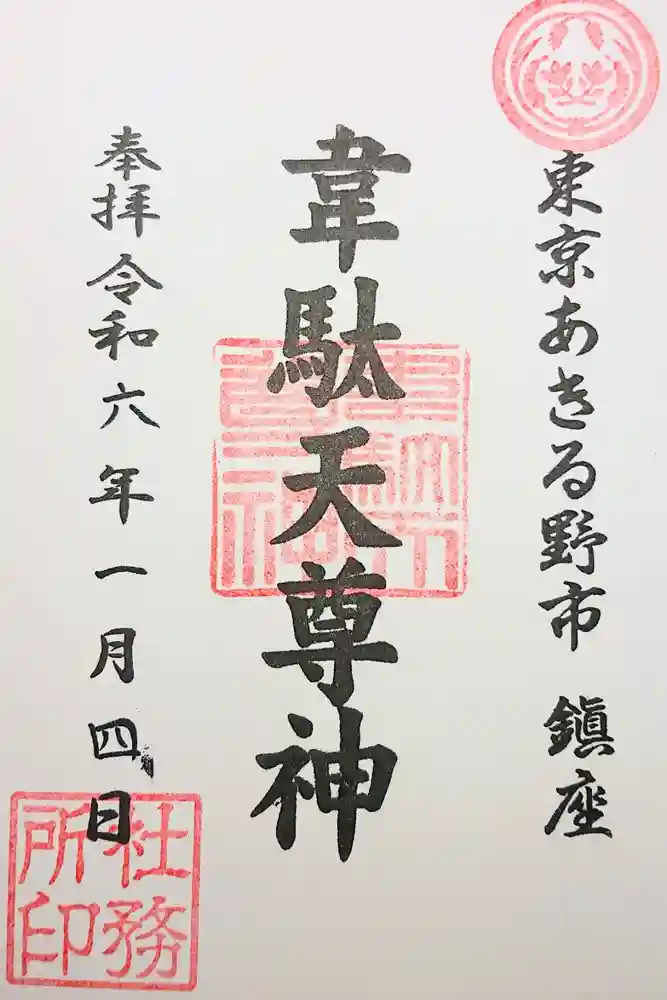 東京あきる野市 鎭座
韋駄天尊神
奉拝 令和六年一月四日
社務
所印